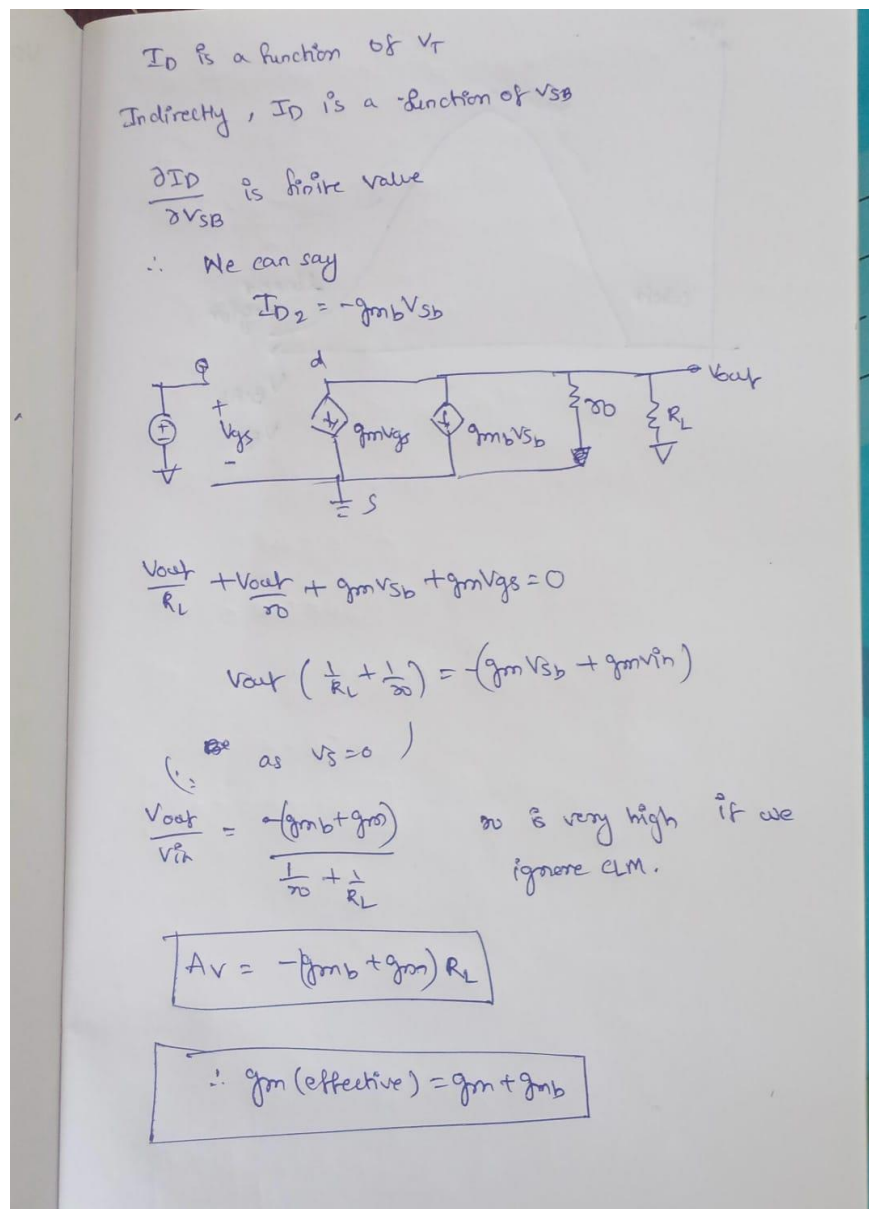 I_D is a function of V_T
Indirectly, I_D is a function of V_SB
∂I_D/∂V_SB is finite value
∴ We can say
I_D2 = -g_mb V_sb
G d Vout
+ Vgs - gmvgs gmbvsb ro R_L
S
Vout/R_L + Vout/ro + gmvsb + gmvgs = 0
Vout (1/R_L + 1/ro) = -(gm vsb + gmvin)
(∵ as vs=0)
Vout/Vin = -(gmb+gm)/(1/ro + 1/R_L) ro is very high if we
ignore CLM.
Av = -(gmb + gm) R_L
∴ gm (effective) = gm + gmb